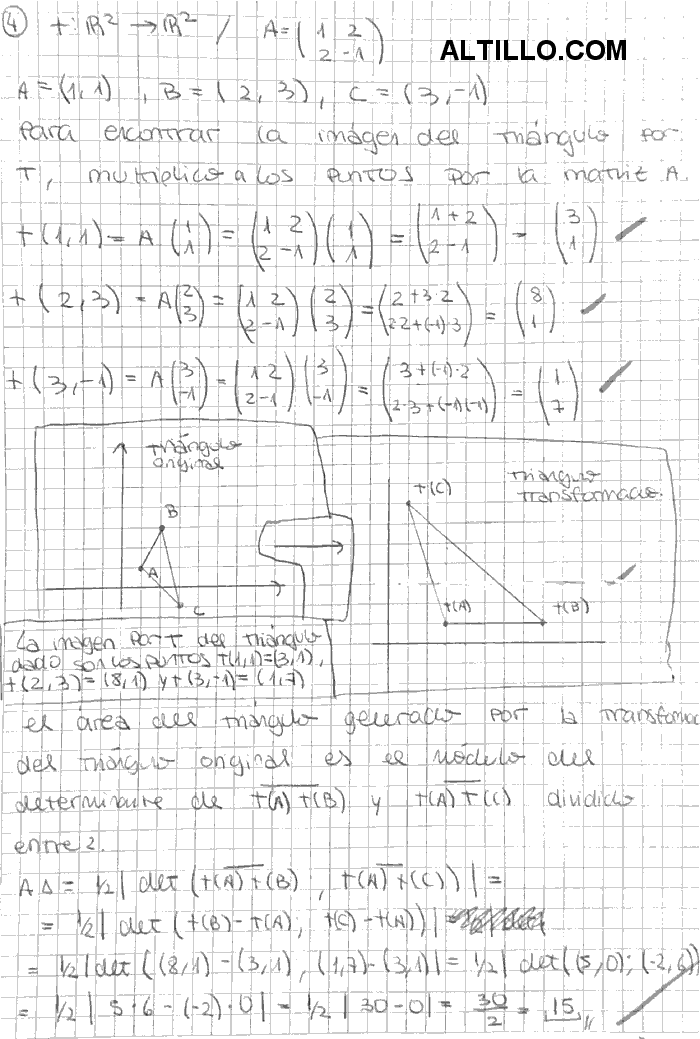 ④ t: ℝ² → ℝ² / A = (1 2
2 -1)
ALTILLO.COM
A = (1,1) , B = (2,3) , C = (3,-1)
para encontrar la imágen del triángulo por
T, multiplico a los puntos por la matriz A.
t(1,1) = A (1 1) = (1 2 2 -1) (1 1) = (1+2 2-1) = (3 1)
t(2,3) = A (2 3) = (1 2 2 -1) (2 3) = (2+3·2 2·2+(-1)·3) = (8 1)
t(3,-1) = A (3 -1) = (1 2 2 -1) (3 -1) = (3+(-1)·2 2·3+(-1)(-1)) = (1 7)
triángulo
original
B
A
C
triángulo
transformado.
t(C)
t(A)
t(B)
La imagen por T del triángulo
dado son los puntos t(1,1)=(3,1),
t(2,3)=(8,1) y t(3,-1)=(1,7)
el área del triángulo generado por la transformac
del triángulo original es el módulo del
determinante de t(A) t(B) y t(A) t(C) dividido
entre 2.
A△ = 1/2 | det (t(A) t(B) ; t(A) t(C)) | =
= 1/2 | det (t(B)-t(A); t(C)-t(A)) | =
= 1/2 | det ((8,1)-(3,1), (1,7)-(3,1) | = 1/2 | det((5,0);(-2,6))
= 1/2 | 5·6-(-2)·0 | = 1/2 | 30-0 | = 30/2 = 15